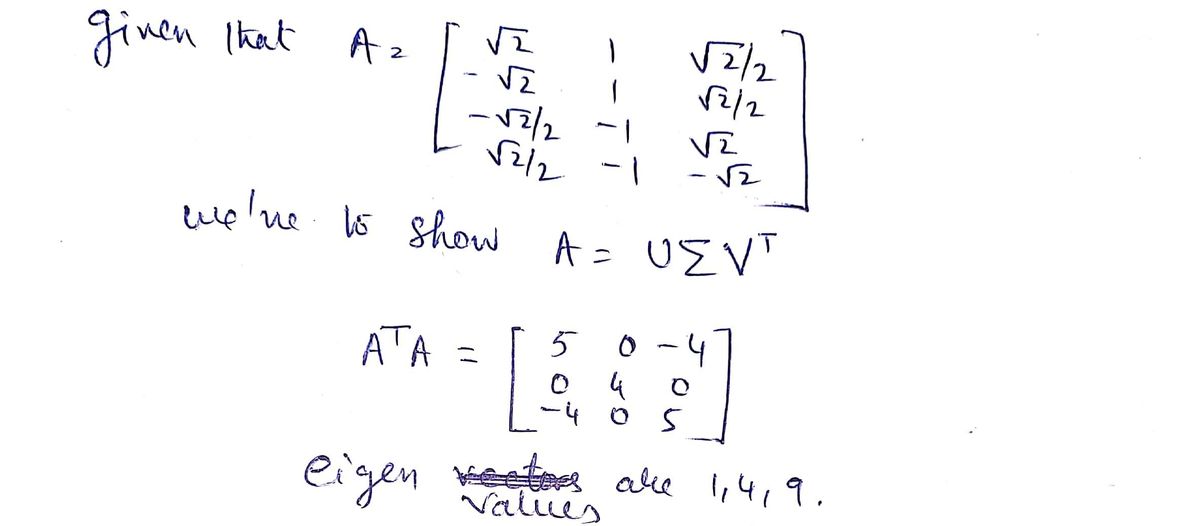 given that A = [ √2 1 √2/2
- √2 1 √2/2
- √2/2 -1 √2
√2/2 -1 - √2 ]
we've to show A = UΣV^T
A^T A = [ 5 0 -4
0 4 0
-4 0 5 ]
eigen vectors are 1, 4, 9.
values